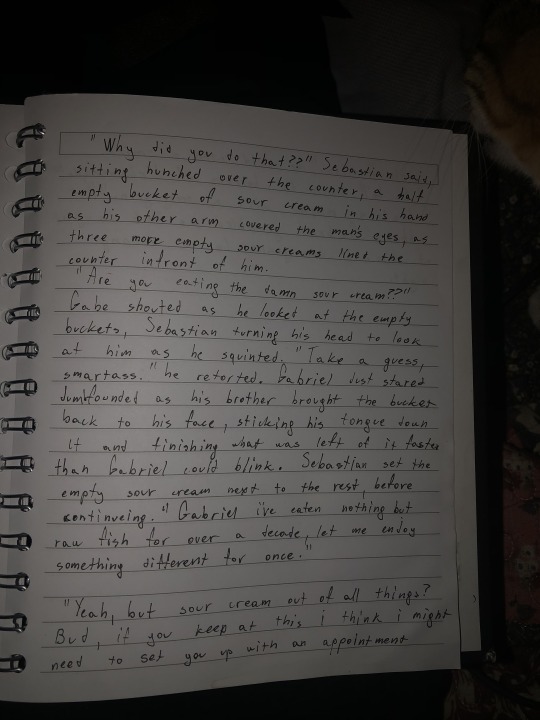 "Why did you do that??" Sebastian said,
sitting hunched over the counter, a half
empty bucket of sour cream in his hand
as his other arm covered the man's eyes, as
three more empty sour creams lined the
counter infront of him.
"Are you eating the damn sour cream??"
Gabe shouted as he looket at the empty
buckets, Sebastian turning his head to look
at him as he squinted. "Take a guess,
smartass." he retorted. Gabriel Just stared
dumbfounded as his brother brought the bucket
back to his face, sticking his tongue down
it and finishing what was left of it faster
than Gabriel could blink. Sebastian set the
empty sour cream next to the rest, before
continueing. "Gabriel i've eaten nothing but
raw fish for over a decade, let me enjoy
something different for once."
"Yeah, but sour cream out of all things?
Bud, if you keep at this i think i might
need to set you up with an appointment